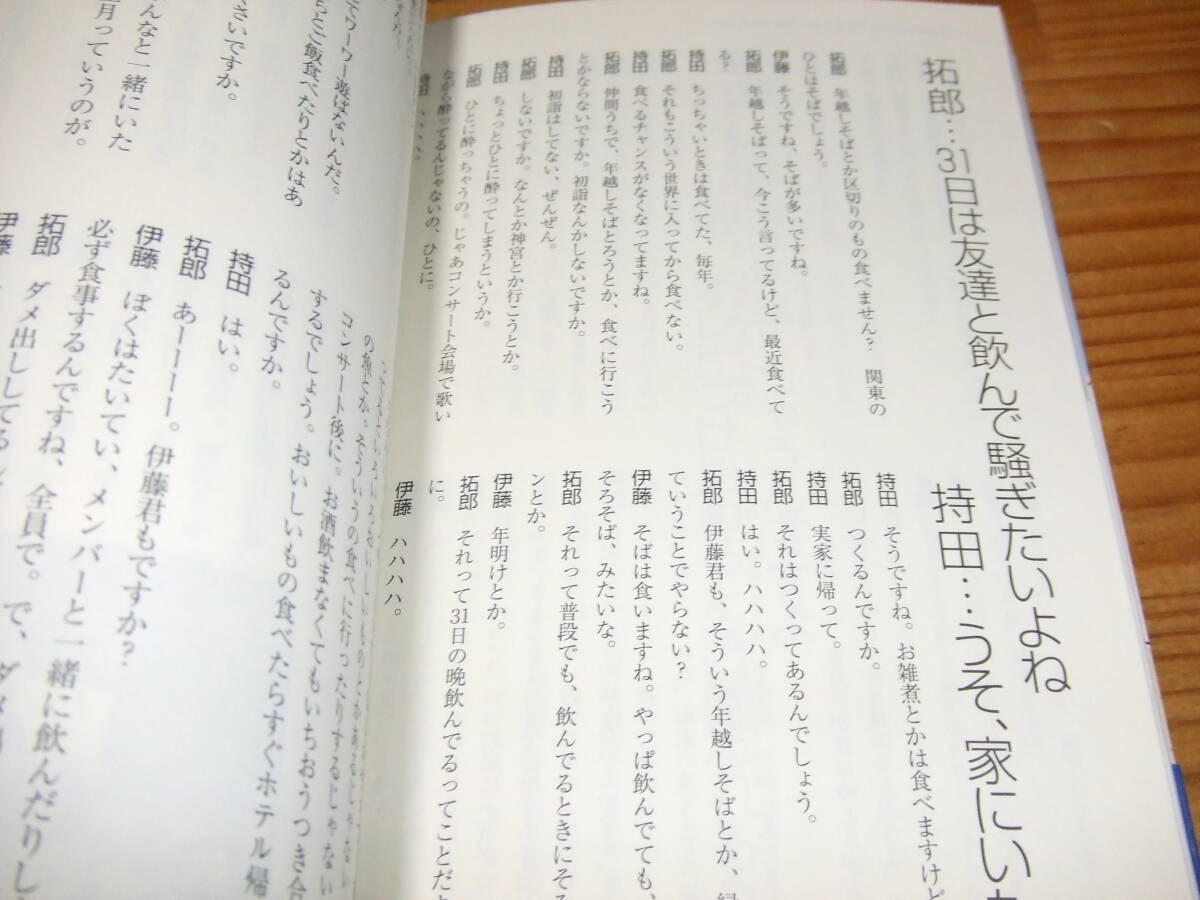 拓郎…31日は友達と飲んで騒ぎたいよね
持田…うそ、家にい
拓郎 年越しそばとか区切りのもの食べません? 関東の
ひとはそばでしょう。
伊藤 そうですね、そばが多いですね。
拓郎 年越しそばって、今こう言ってるけど、最近食べて
る?
持田 ちっちゃいときは食べてた、毎年。
拓郎 それもこういう世界に入ってから食べない。
持田 食べるチャンスがなくなってますね。
拓郎 仲間うちで、年越しそばとろうとか、食べに行こう
とかならないですか。初詣なんかしないですか。
持田 初詣はしてない、ぜんぜん。
拓郎 しないですか。なんとか神宮とか行こうとか。
持田 ちょっとひとに酔ってしまうというか。
拓郎 ひとに酔っちゃうの。じゃあコンサート会場で歌い
ながら酔ってるんじゃないの、ひとに。
持田 ハハハハ。
持田 そうですね。お雑煮とかは食べますけど
拓郎 つくるんですか。
持田 実家に帰って。
拓郎 それはつくってあるんでしょう。
持田 はい。ハハハハ。
拓郎 伊藤君も、そういう年越しそばとか、
ていうことでやらない?
伊藤 そばは食いますね。やっぱ飲んでても、
そろそば、みたいな。
拓郎 それって普段でも、飲んでるときにそ
ンとか。
伊藤 年明けとか。
拓郎 それって31日の晩飲んでるってことだ
に。
伊藤 ハハハハ。
てワーワー遊ばないんだ。
ご飯食べたりとかはあ
さいですか。
んなと一緒にいた
月っていうのが。
の魚とか。そういうの食べに行ったりするじゃない
コンサート後に。お酒飲まなくてもいちおうつき合
するでしょう。おいしいもの食べたらすぐホテル帰
るんですか。
持田 はい。
拓郎 あーーー。伊藤君もですか?
伊藤 ぼくはたいてい、メンバーと一緒に飲んだりし
必ず食事するんですね、全員で。で、
拓郎 ダメ出ししてる
伊藤